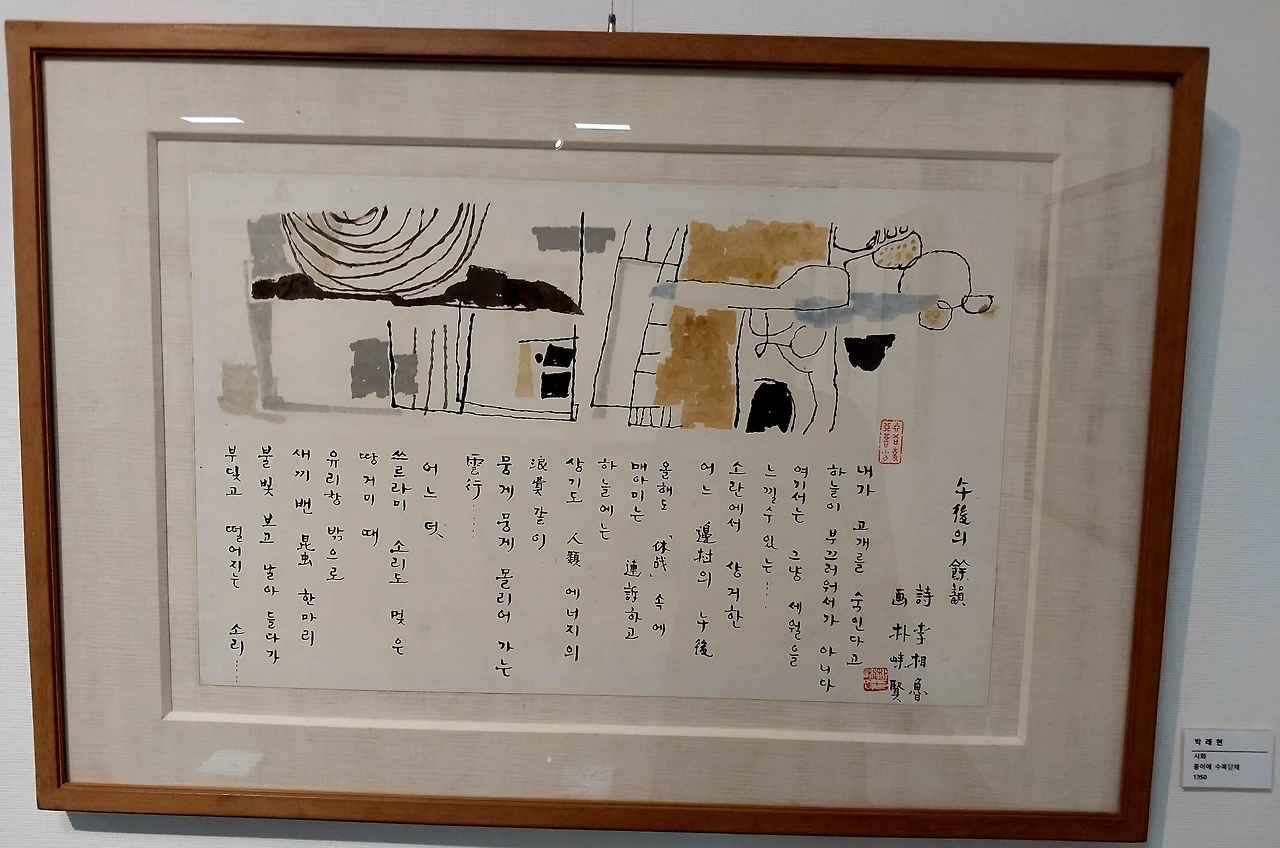 午後의 餘韻
詩 李相魯
画 朴崍賢
내가 고개를 숙인다고
하늘이 부끄러워서가 아니다
여기서는 그냥 세월을
느낄수 있는…
소란에서 상거한
어느 邊村의 午後
올해도 「休戰」 속에
매아미는 連
하고
하늘에는
상기도 人類 에너지의
浪費같이
뭉게 뭉게 몰리어 가는
雲行……
어느 덧
쓰르라미 소리도 멎은
땅거미 때
유리창 밖으로
새끼 밴 昆虫 한마리
불빛 보고 날아 들다가
부딪고 떨어지는 소리……
박 래 현
시화
종이에 수묵담채